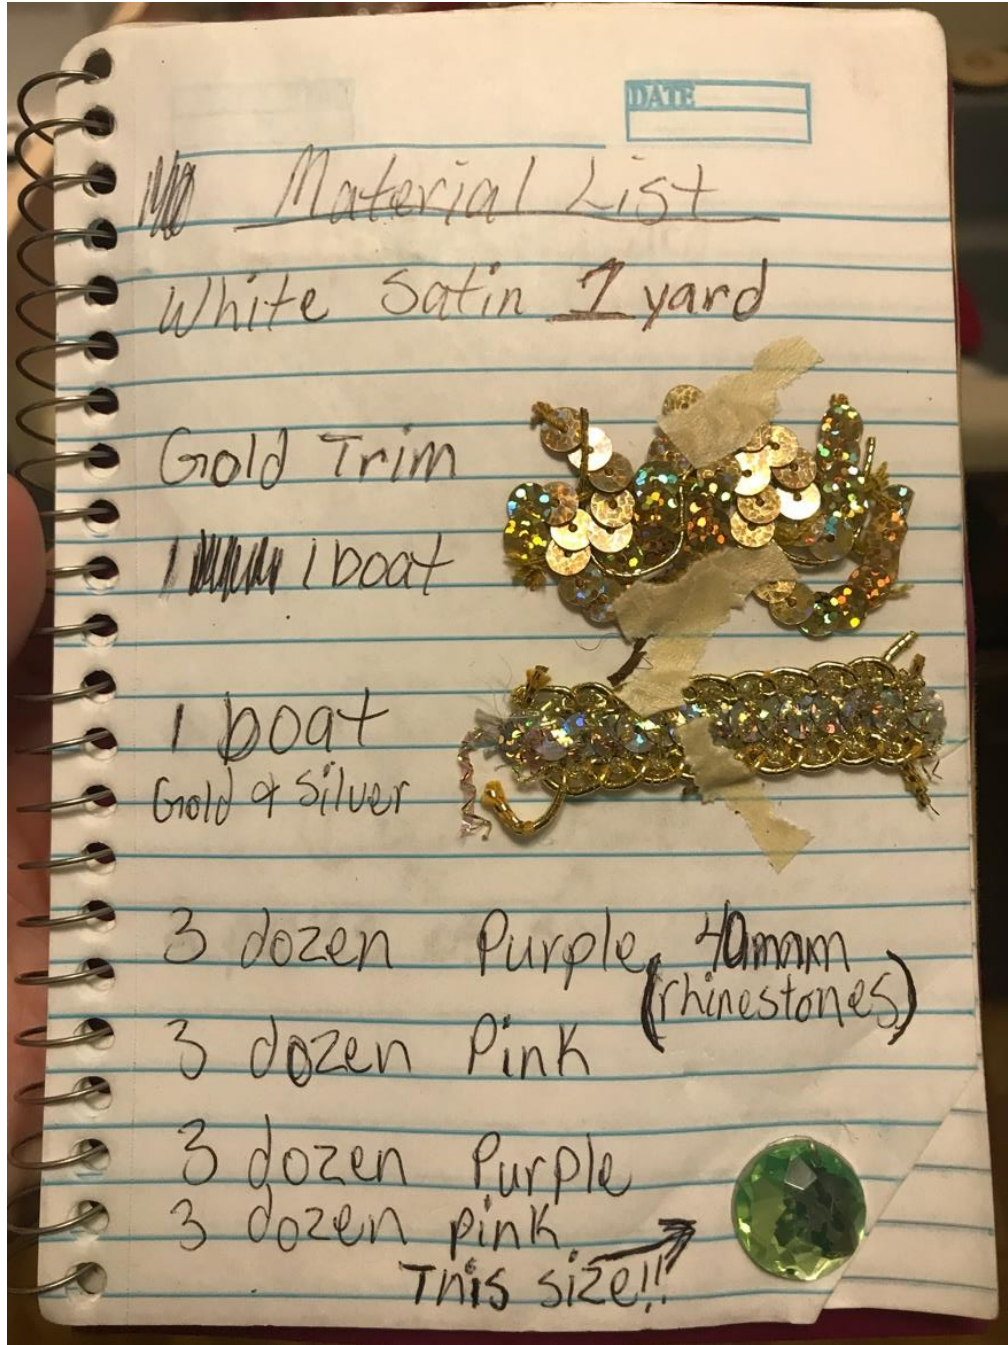 DATE
Material List
White Satin 1 yard
Gold Trim
1 1 boat
1 boat
Gold & Silver
3 dozen Purple 40mm
(rhinestones)
3 dozen Pink
3 dozen Purple
3 dozen pink
This size!!